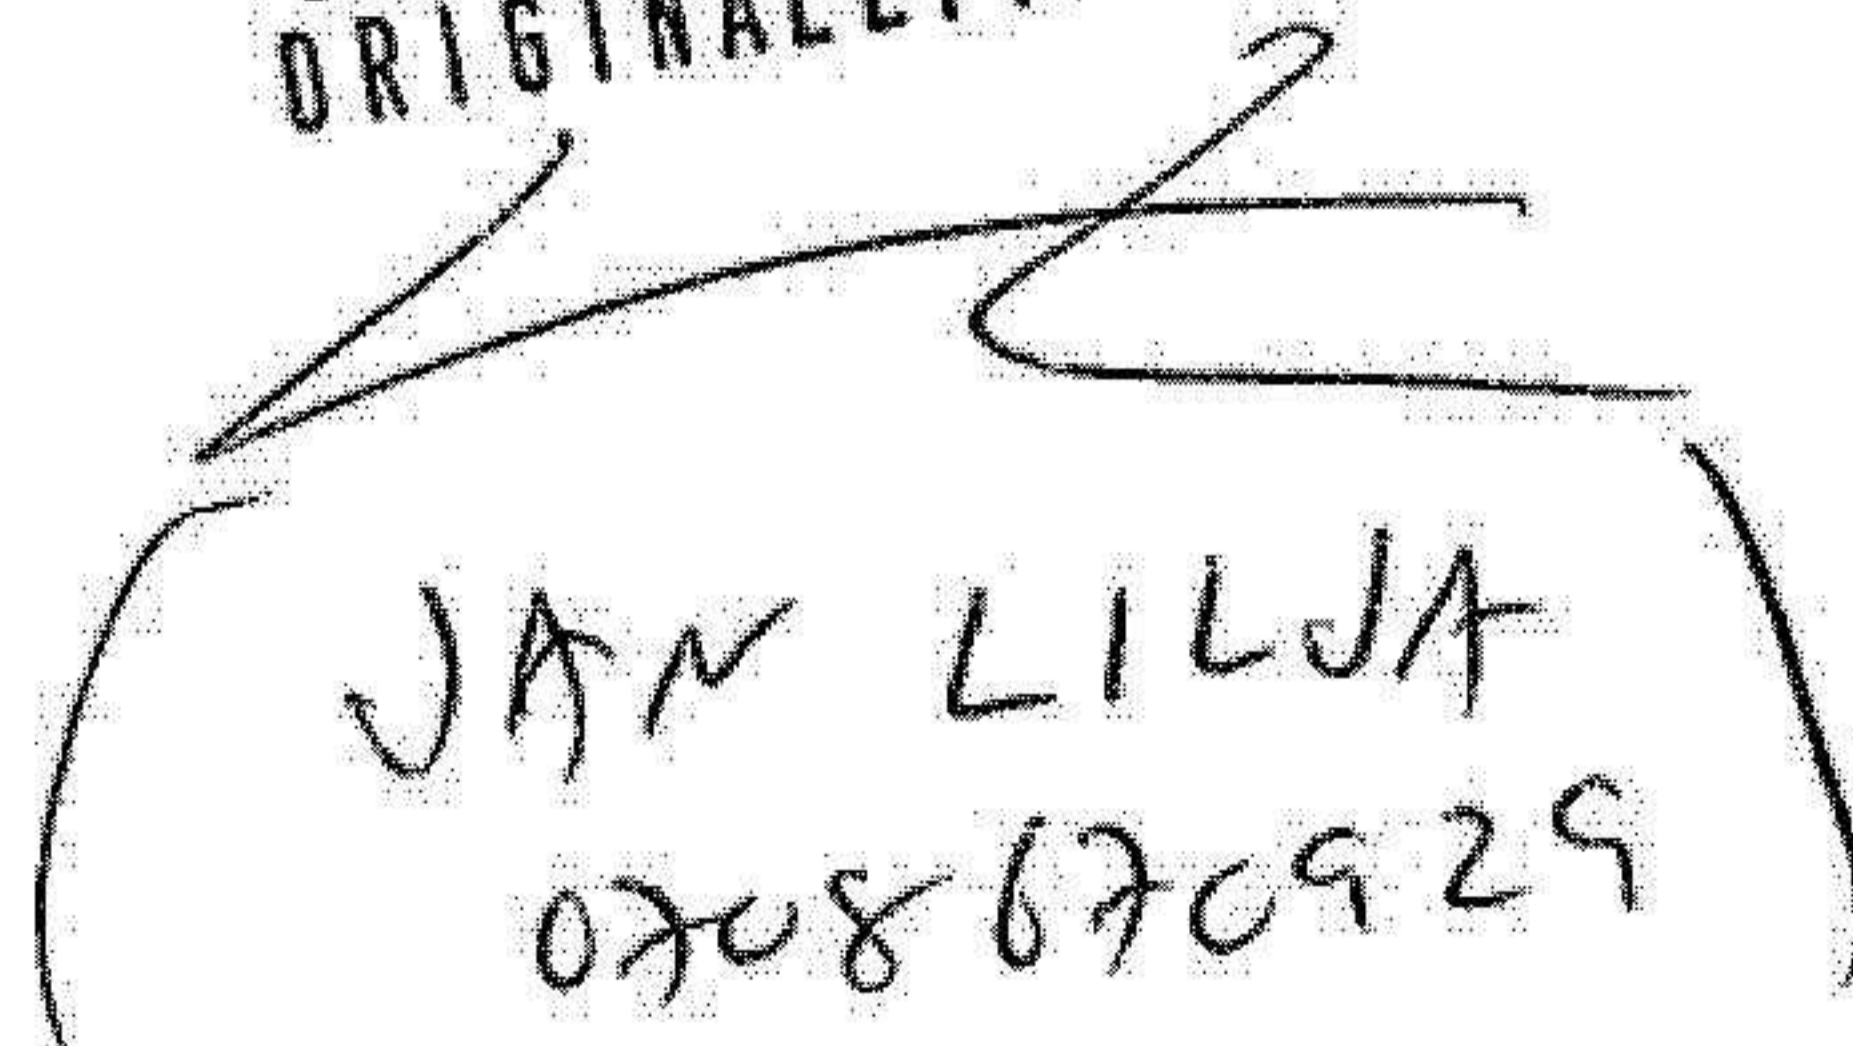 ORIGINAL
JAN LILJA
0708670929